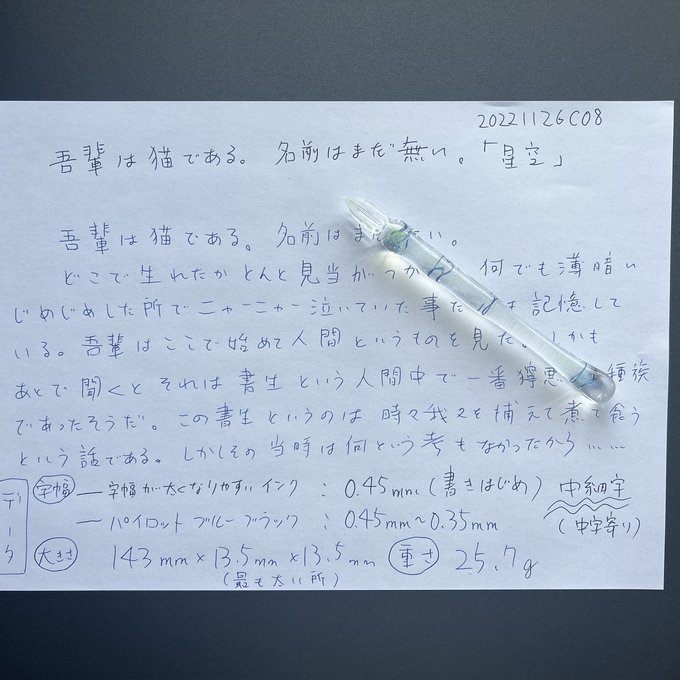 20221126C08
吾輩は猫である。名前はまだ無い。「星空」
吾輩は猫である。名前はまだ い。
どこで生れたかとんと見当がつかぬ 何でも薄暗い
じめじめした所でニャーニャー泣いていた事だ は記憶して
いる。吾輩はここで始めて人間というものを見た。しかも
あとで聞くとそれは書生という人間中で一番獰悪 種族
であったそうだ。この書生というのは時々我々を捕えて煮て食う
という話である。しかしその当時は何という考もなかったから……
データ
字幅 ー 字幅が太くなりやすいインク : 0.45mm (書きはじめ) 中細字
ー パイロット ブルーブラック : 0.45mm~0.35mm (中字寄り)
大きさ 143mm×13.5mm×13.5mm 重さ 25.7g
(最も太い所)